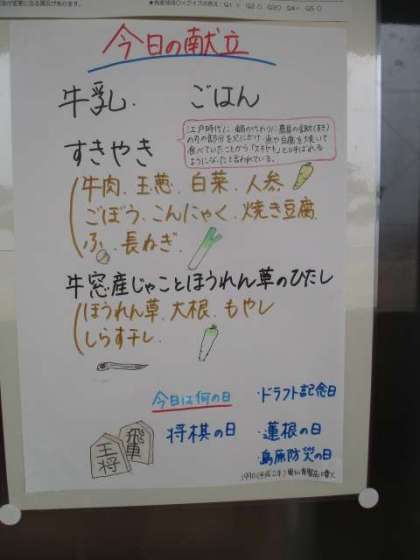 今日の献立
牛乳. ごはん
すきやき
江戸時代に、鍋の代わりに農具の鋤(すき)
の刃の部分を火にかけ、魚や豆腐を焼いて
食べていたことから「スキヤキ」と呼ばれる
ようになったと言われている。
牛肉、玉葱、白菜、人参
ごぼう、こんにゃく、焼き豆腐
ふ、長ねぎ
牛窓産じゃことほうれん草のひたし
ほうれん草、大根、もやし
しらす干し
今日は何の日
・ドラフト記念日
将棋の日
・蓮根の日
・島原防災の日
飛車
王将